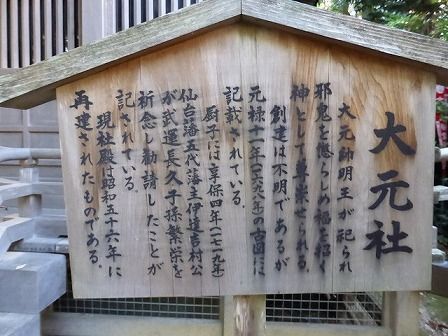 大元社
大元帥明王が祀られ
邪鬼を懲らしめ福を招く
神として尊崇せられる。
創建は不明であるが
元禄十一年(一六九八年)の古図に
記載されている。
厨子には享保四年(一七一九年)
仙台藩五代藩主伊達吉村公
が武運長久子孫繁栄を
祈念し勧請したことが
記されている。
現社殿は昭和五十六年に
再建されたものである。